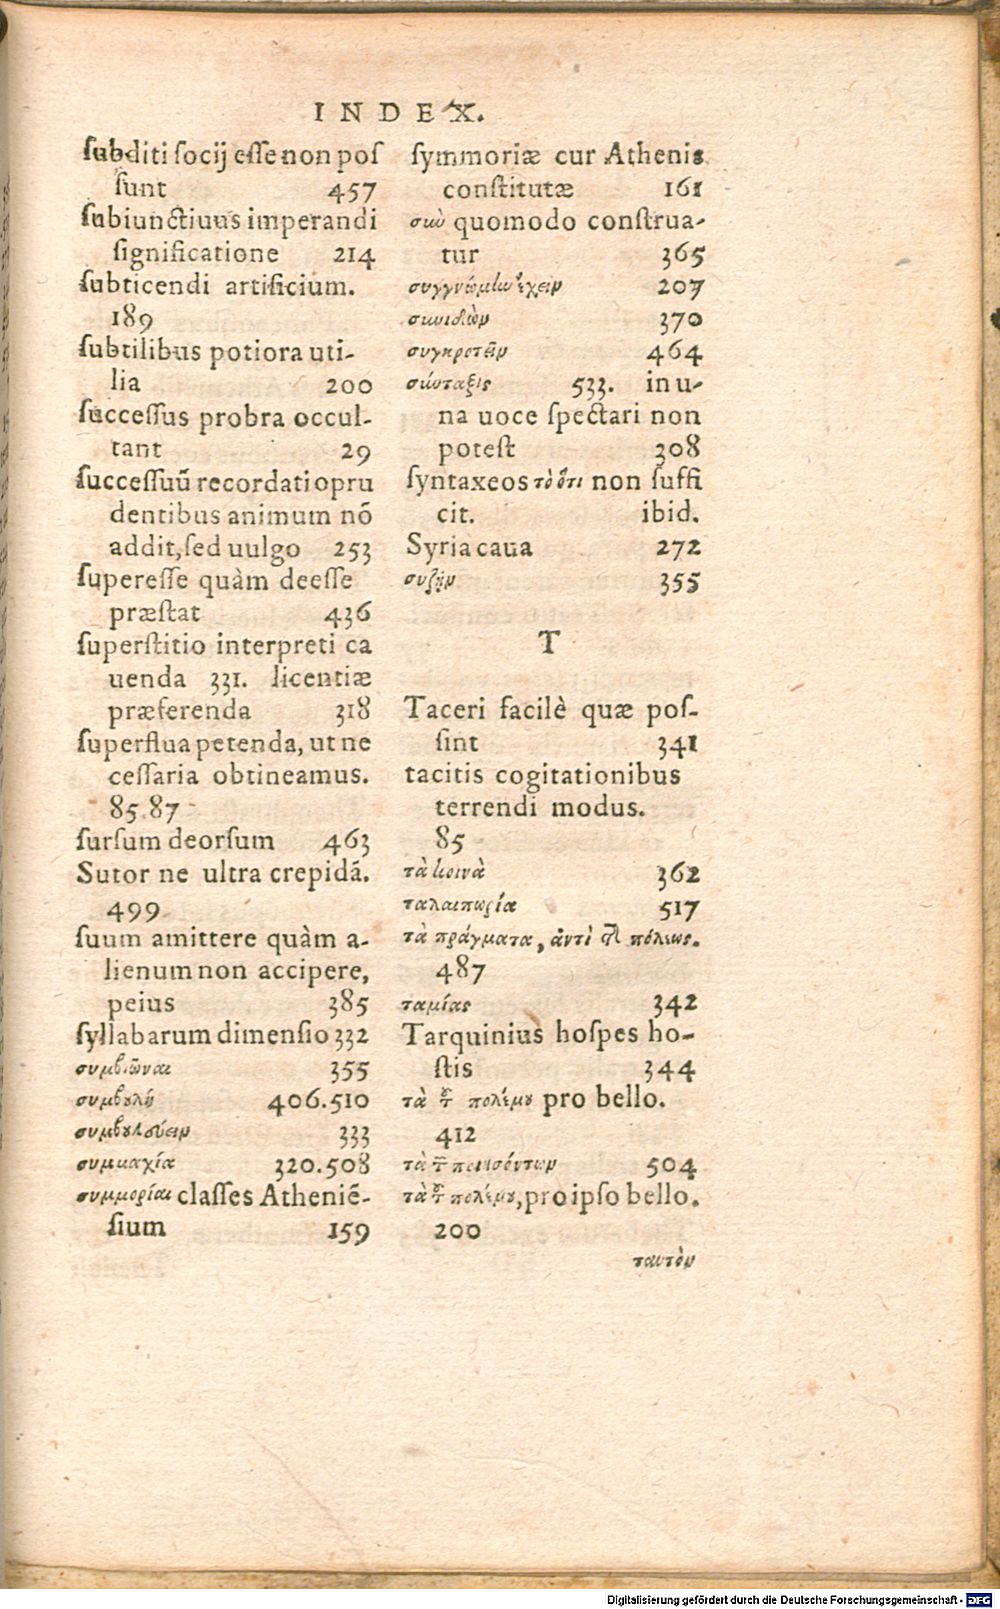 INDEX.
ſubditi ſocij eſſe non poſ
ſunt 457
ſubiunctiuus imperandi
ſignificatione 214
ſubticendi artificium.
189
ſubtilibus potiora uti-
lia 200
ſucceſſus probra occul-
tant 29
ſucceſſuū recordatio pru
dentibus animum nō
addit, ſed uulgo 253
ſupereſſe quàm deeſſe
præſtat 436
ſuperſtitio interpreti ca
uenda 331. licentiæ
præferenda 318
ſuperflua petenda, ut ne
ceſſaria obtineamus.
85.87
ſurſum deorſum 463
Sutor ne ultra crepidā.
499
ſuum amittere quàm a-
lienum non accipere,
peius 385
ſyllabarum dimenſio 332
συμβιῶναι 355
συμβουλὴ 406.510
συμβουλεύειν 333
συμμαχία 320.508
συμμορίαι claſſes Atheniē-
ſium 159
ſymmoriæ cur Athenis
conſtitutæ 161
σὺν quomodo conſtrua-
tur 365
συγγνώμην ἔχειν 207
συνιδὼν 370
συγκροτεῖν 464
σύνταξις 533. in u-
na uoce ſpectari non
poteſt 308
ſyntaxeos τὸ ὅτι non ſuffi
cit. ibid.
Syria caua 272
συζῆν 355
T
Taceri facilè quæ poſ-
ſint 341
tacitis cogitationibus
terrendi modus.
85
τὰ κοινὰ 362
ταλαιπωρία 517
τὰ πράγματα, ἀντὶ τῆς πόλεως.
487
ταμίας 342
Tarquinius hoſpes ho-
ſtis 344
τὰ τοῦ πολέμου pro bello.
412
τὰ τῶν πεισόντων 504
τὰ τοῦ πολέμου, pro ipſo bello.
200
ταυτὸν